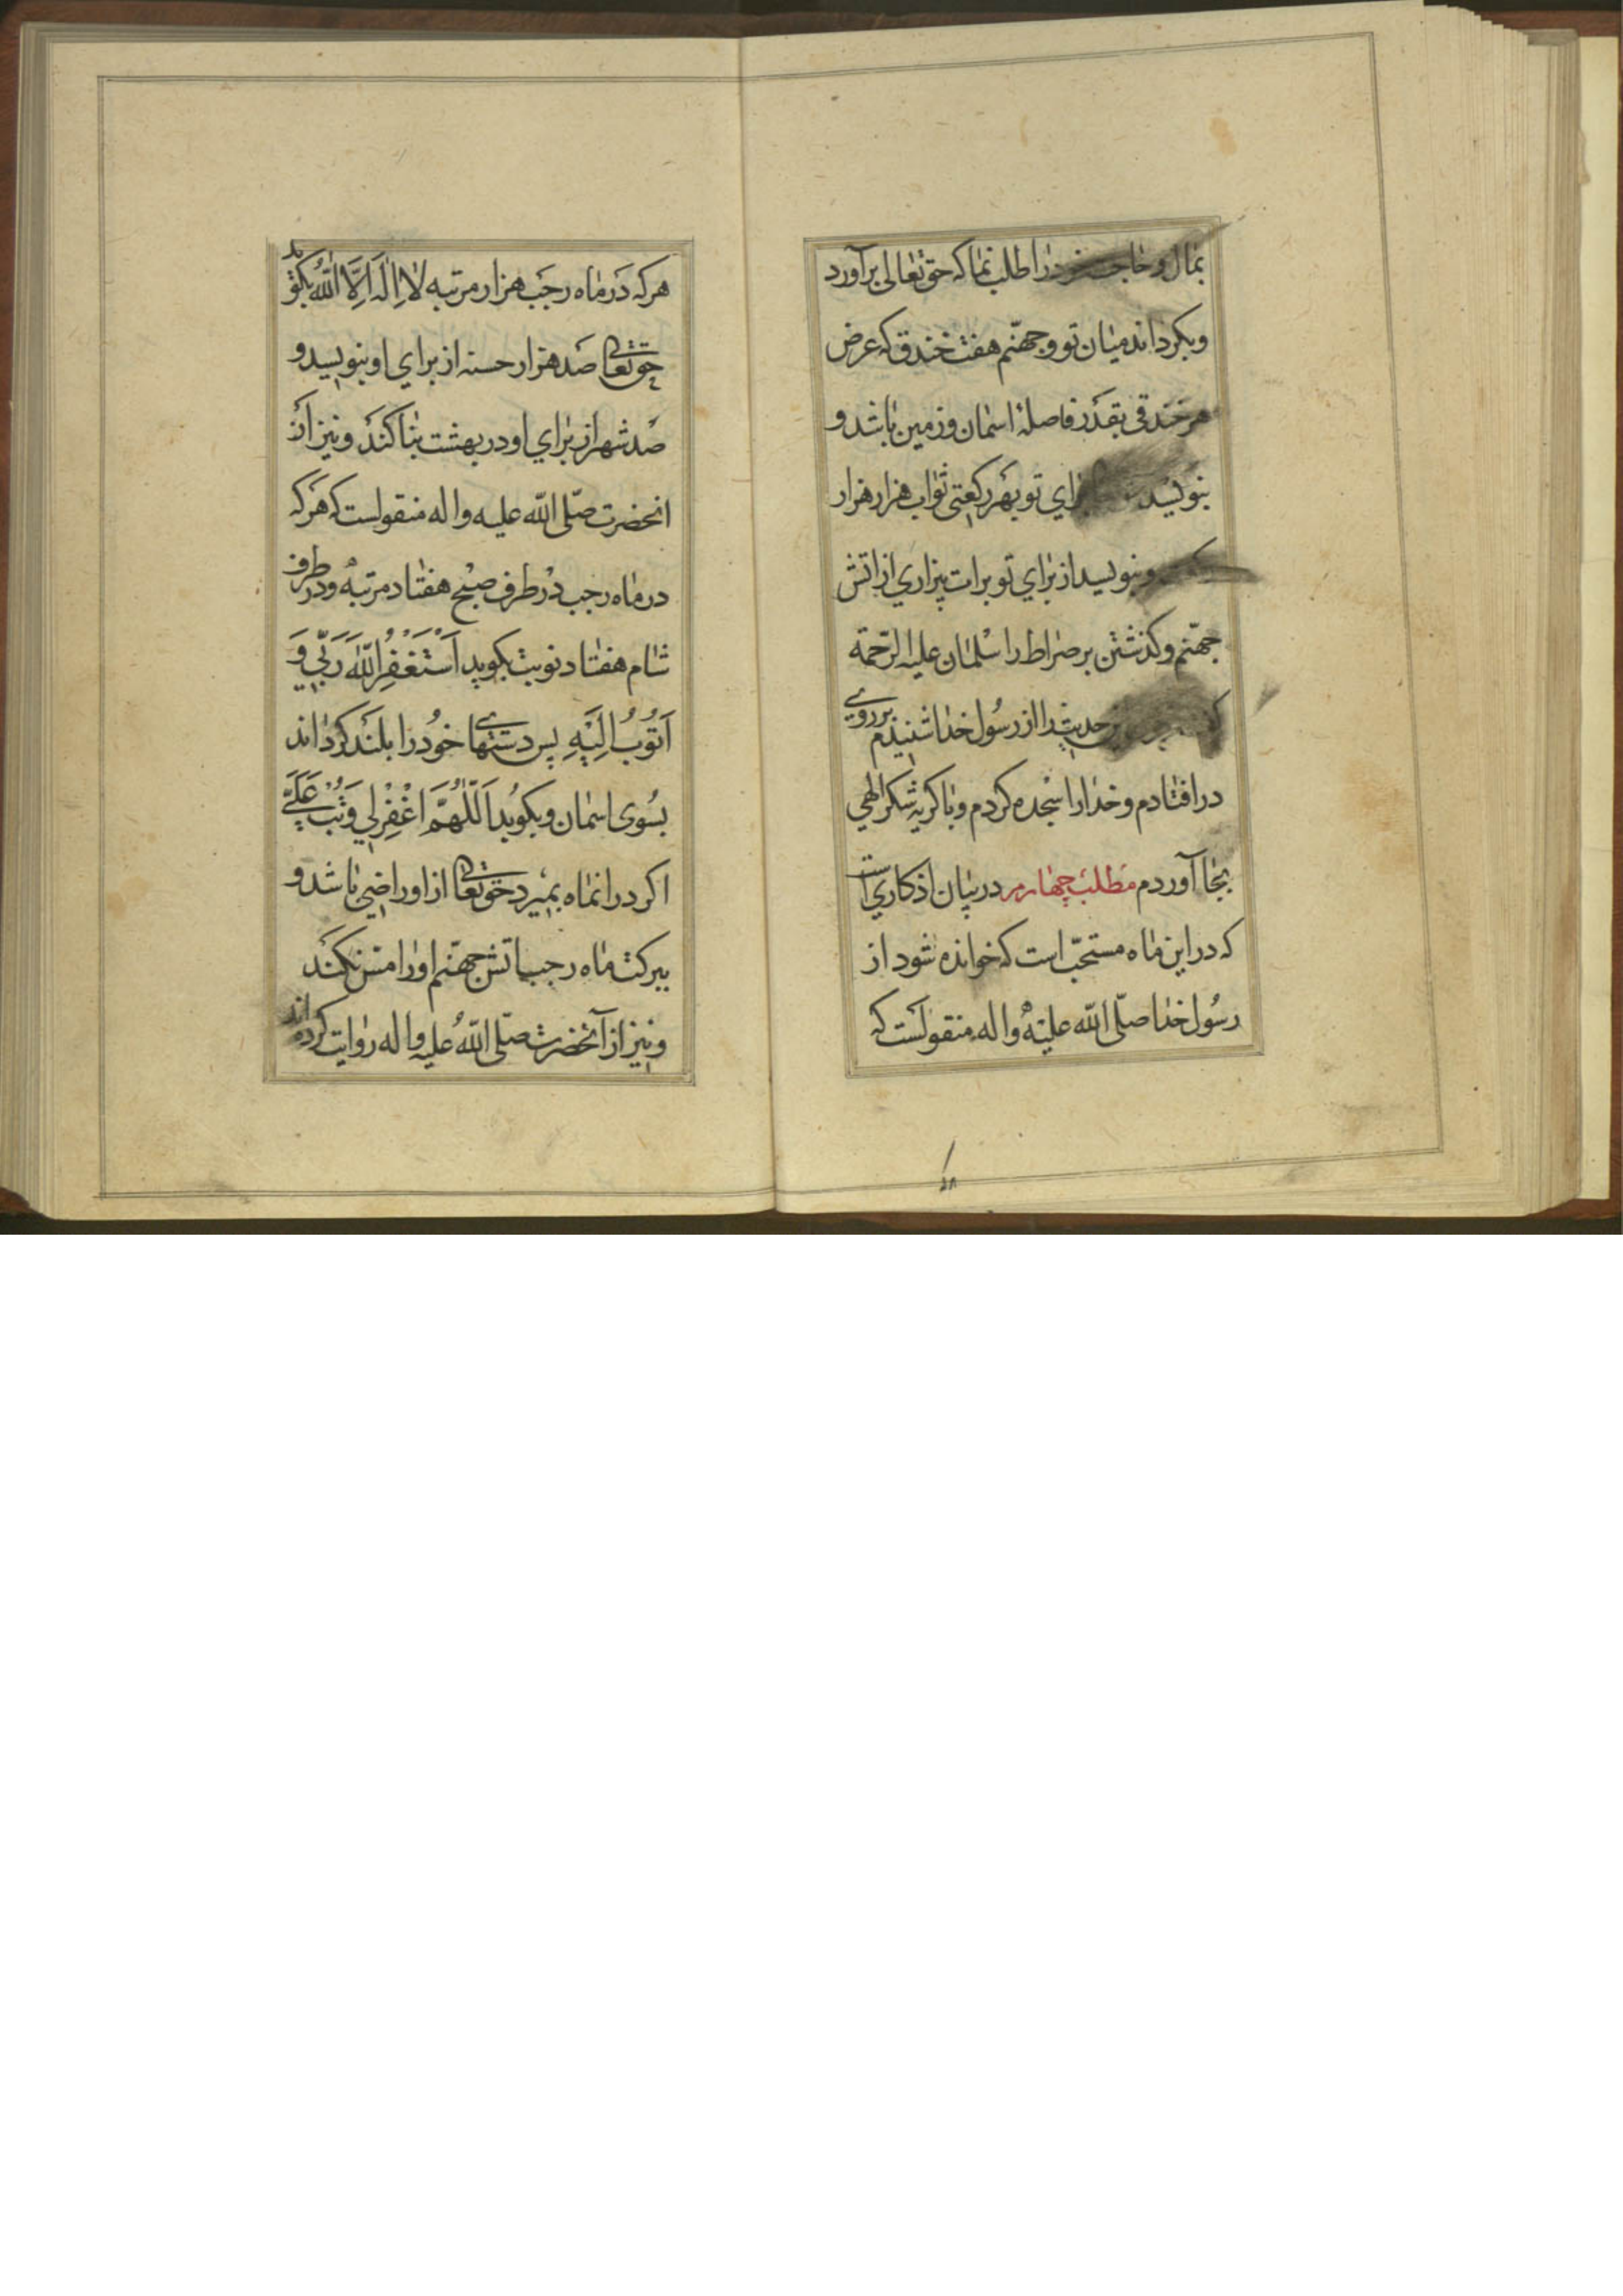 بمال و حاجت خود را طلب نما که حق تعالی برآورد
و بکرداند میان تو و جهنّم هفت خندق که عرض
هر خندقی بقدر فاصلهٔ اسمان و زمین باشد و
بنویسد برای تو بهر رکعتی ثواب هزار هزار
و بنویسد از برای تو برات بیزاری از اتش
جهنّم و کذشتن بر صراط را سلمان علیه الرّحمة
حدیث را از رسول خدا شنیدم بر روی
در افتادم و خدا را سجده کردم و با کریه شکر الهی
بجا آوردم مطلب چهارم در بیان اذکاریست
که در این ماه مستحبّ است که خوانده شود از
رسول خدا صلّی اللّه علیه و اله منقولست که
هر که در ماه رجب هزار مرتبه لا اِلٰهَ اِلَّا اللّٰهُ بکوید
حق تعالی صد هزار حسنه از برای او بنویسد و
صد شهر از برای او در بهشت بنا کند و نیز از
انحضرت صلّی اللّه علیه و اله منقولست که هر که
در ماه رجب در طرف صبح هفتاد مرتبه و در طرف
شام هفتاد نوبت بکوید اَسْتَغْفِرُ اللّٰهَ رَبّي وَ
اَتُوبُ اِلَيْهِ پس دستهای خود را بلند کرداند
بسوی اسمان و بکوید اَللّٰهُمَّ اغْفِرْلي وَ تُبْ عَلَيَّ
اکر در انماه بمیرد حق تعالی از او راضی باشد و
ببرکت ماه رجب اتش جهنّم او را مس نکند
و نیز از آنحضرت صلّی اللّهُ علیه و اله روایت کرده اند